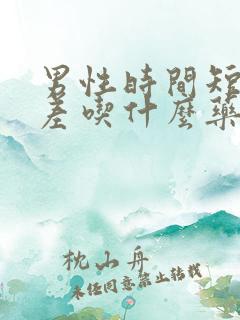 男性時間短
差喫什麼藥
枕山舟
未经同意禁止转载